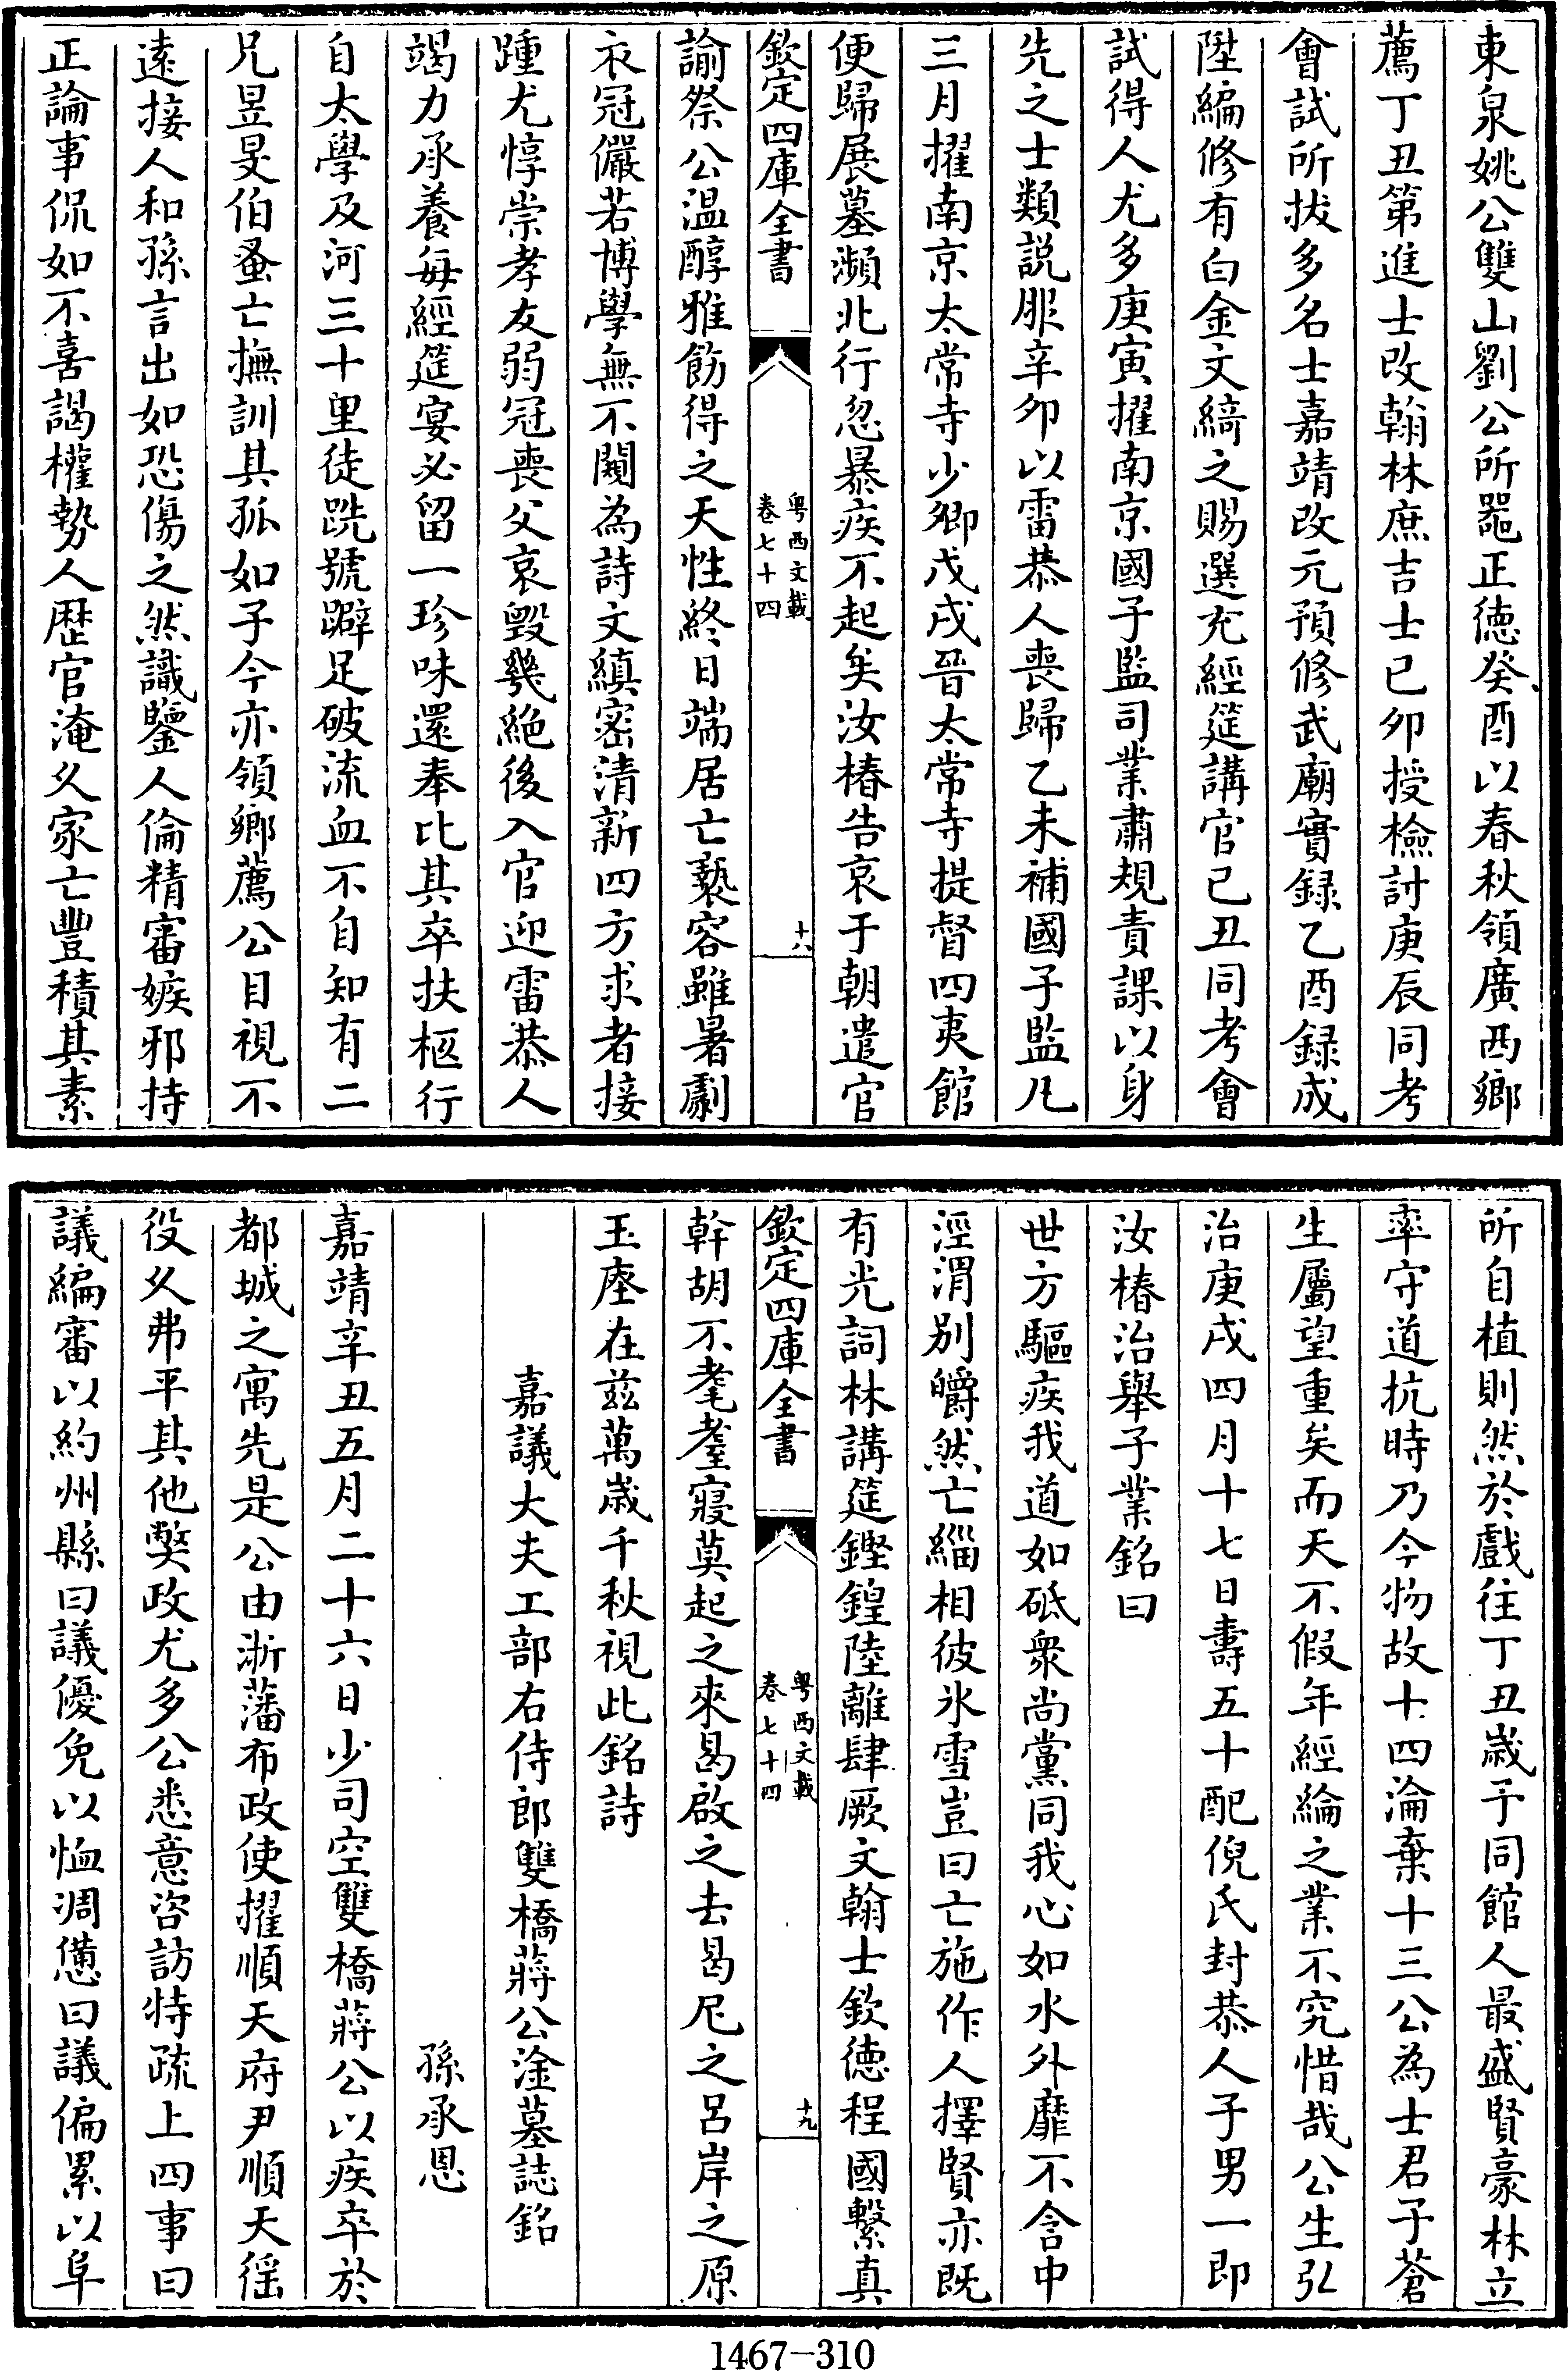 東泉姚公雙山劉公所器正徳癸酉以春秋領廣西鄉
薦丁丑第進士改翰林庶吉士已卯授檢討庚辰同考
會試所拔多名士嘉靖改元預修武廟實録乙酉録成
陞編修有白金文綺之賜選充經筵講官已丑同考會
試得人尤多庚寅擢南京國子監司業肅規責課以身
先之士類説服辛夘以雷恭人喪歸乙未補國子監凡
三月擢南京太常寺少卿戊戌晉太常寺提督四夷館
便歸展墓瀕北行忽暴疾不起矣汝椿告哀于朝遣官
欽定四庫全書
粤西文載
卷七十四
十八
諭祭公温醇雅飭得之天性終日端居亡褻容雖暑劇
衣冠儼若博學無不閱為詩文縝宻清新四方求者接
踵尤惇崇孝友弱冠喪父哀毁幾絶後入官迎雷恭人
竭力承養毎經筵宴必留一珍味還奉比其卒扶柩行
自太學及河三十里徒跣號躃足破流血不自知有二
兄昱旻伯蚤亡撫訓其孤如子今亦領鄉薦公目視不
逺接人和孫言出如恐傷之然識鑒人倫精審嫉邪持
正論事侃如不喜謁權勢人歴官淹乆家亡豐積其素
所自植則然於戲往丁丑嵗予同館人最盛賢豪林立
率守道抗時乃今物故十四淪棄十三公為士君子蒼
生屬望重矣而天不假年經綸之業不究惜哉公生弘
治庚戌四月十七日壽五十配倪氏封恭人子男一即
汝椿治舉子業銘曰
世方驅疾我道如砥衆尚黨同我心如水外靡不含中
涇渭别皭然亡緇相彼氷雪豈曰亡施作人擇賢亦既
有光詞林講筵鏗鍠陸離肆厥文翰士欽徳程國繫真
欽定四庫全書
粤西文載
卷七十四
十九
幹胡不耄耋寢莫起之來曷啟之去曷尼之呂岸之原
玉座在兹萬嵗千秋視此銘詩
嘉議大夫工部右侍郎雙橋蔣公淦墓誌銘
孫承恩
嘉靖辛丑五月二十六日少司空雙橋蔣公以疾卒於
都城之寓先是公由浙藩布政使擢順天府尹順天徭
役乆弗平其他獘政尤多公悉意咨訪特疏上四事曰
議編審以約州縣曰議優免以恤凋憊曰議偏累以阜
1467-310